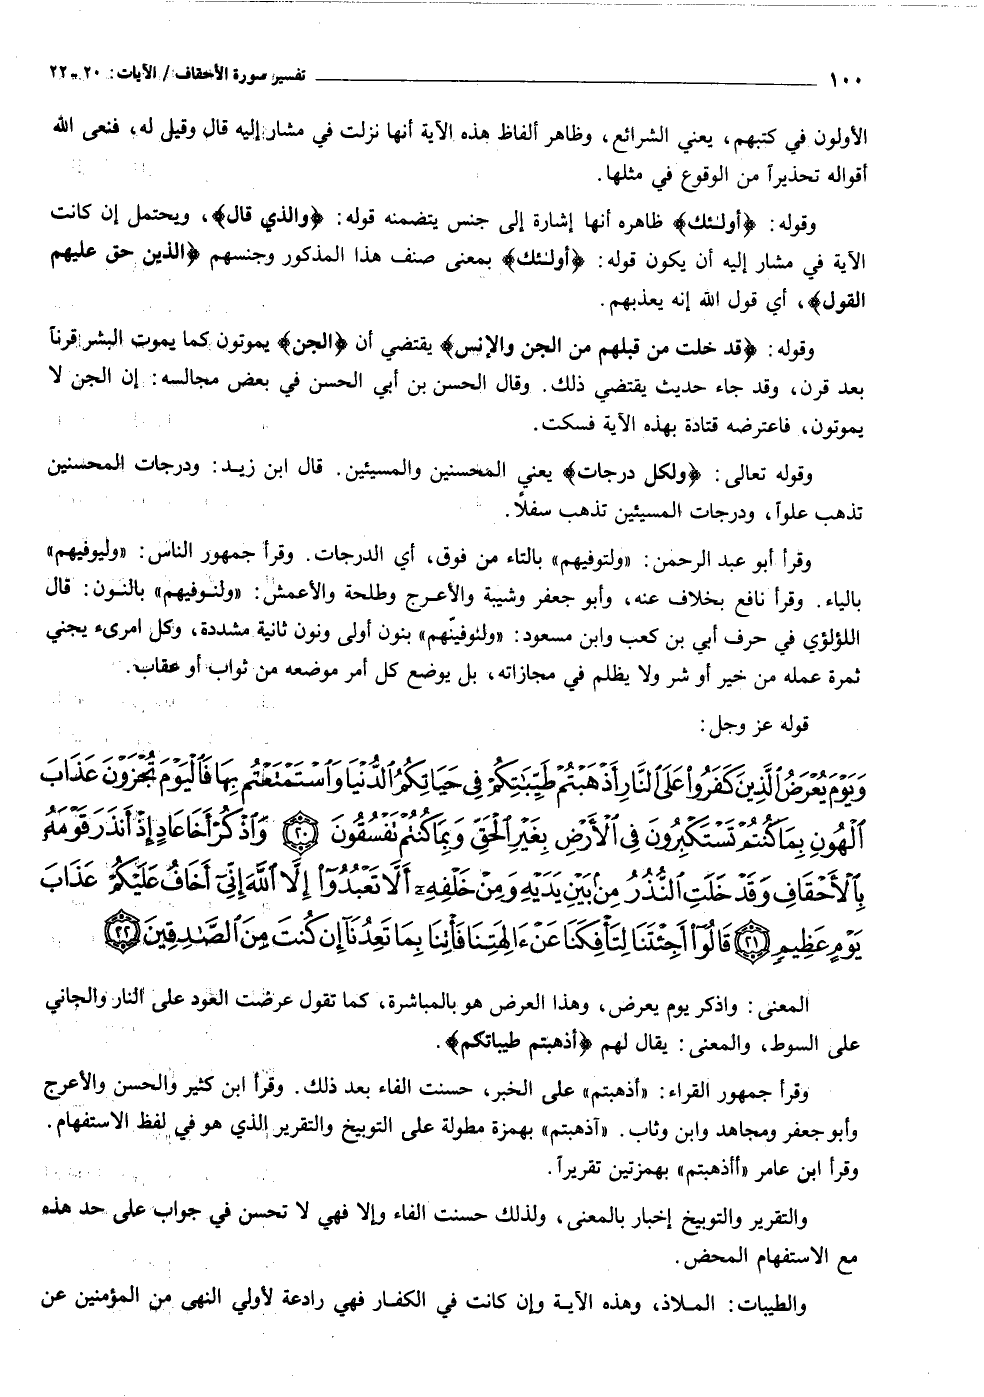 ١٠٠ تفسير سورة الأحقاف / الآيات: ٢٠ - ٢٢
الأولون في كتبهم، يعني الشرائع، وظاهر ألفاظ هذه الآية أنها نزلت في مشار إليه قال وقيل له، فنعى الله
أقواله تحذيراً من الوقوع في مثلها.
وقوله: ﴿أولئك﴾ ظاهره أنها إشارة إلى جنس يتضمنه قوله: ﴿والذي قال﴾، ويحتمل إن كانت
الآية في مشار إليه أن يكون قوله: ﴿أولئك﴾ بمعنى صنف هذا المذكور وجنسهم ﴿الذين حق عليهم
القول﴾، أي قول الله إنه يعذبهم.
وقوله: ﴿قد خلت من قبلهم من الجن والإنس﴾ يقتضي أن ﴿الجن﴾ يموتون كما يموت البشر قرناً
بعد قرن، وقد جاء حديث يقتضي ذلك. وقال الحسن بن أبي الحسن في بعض مجالسه: إن الجن لا
يموتون، فاعترضه قتادة بهذه الآية فسكت.
وقوله تعالى: ﴿ولكل درجات﴾ يعني المحسنين والمسيئين. قال ابن زيد: ودرجات المحسنين
تذهب علواً، ودرجات المسيئين تذهب سفلاً.
وقرأ أبو عبد الرحمن: «ولتوفيهم» بالتاء من فوق، أي الدرجات. وقرأ جمهور الناس: «وليوفيهم»
بالياء. وقرأ نافع بخلاف عنه، وأبو جعفر وشيبة والأعرج وطلحة والأعمش: «ولنوفيهم» بالنون: قال
اللؤلؤي في حرف أبي بن كعب وابن مسعود: «ولنوفينّهم» بنون أولى ونون ثانية مشددة، وكل امرىء يجني
ثمرة عمله من خير أو شر ولا يظلم في مجازاته، بل يوضع كل أمر موضعه من ثواب أو عقاب.
قوله عز وجل:
وَيَوْمَ يُعْرَضُ ٱلَّذِينَ كَفَرُوا۟ عَلَى ٱلنَّارِ أَذْهَبْتُمْ طَيِّبَـٰتِكُمْ فِى حَيَاتِكُمُ ٱلدُّنْيَا وَٱسْتَمْتَعْتُم بِهَا فَٱلْيَوْمَ تُجْزَوْنَ عَذَابَ
ٱلْهُونِ بِمَا كُنتُمْ تَسْتَكْبِرُونَ فِى ٱلْأَرْضِ بِغَيْرِ ٱلْحَقِّ وَبِمَا كُنتُمْ تَفْسُقُونَ ۝٢٠ وَٱذْكُرْ أَخَا عَادٍ إِذْ أَنذَرَ قَوْمَهُۥ
بِٱلْأَحْقَافِ وَقَدْ خَلَتِ ٱلنُّذُرُ مِنۢ بَيْنِ يَدَيْهِ وَمِنْ خَلْفِهِۦٓ أَلَّا تَعْبُدُوٓا۟ إِلَّا ٱللَّهَ إِنِّىٓ أَخَافُ عَلَيْكُمْ عَذَابَ
يَوْمٍ عَظِيمٍ ۝٢١ قَالُوٓا۟ أَجِئْتَنَا لِتَأْفِكَنَا عَنْ ءَالِهَتِنَا فَأْتِنَا بِمَا تَعِدُنَآ إِن كُنتَ مِنَ ٱلصَّـٰدِقِينَ ۝٢٢
المعنى: واذكر يوم يعرض، وهذا العرض هو بالمباشرة، كما تقول عرضت العود على النار والجاني
على السوط، والمعنى: يقال لهم ﴿أذهبتم طيباتكم﴾.
وقرأ جمهور القراء: «أذهبتم» على الخبر، حسنت الفاء بعد ذلك. وقرأ ابن كثير والحسن والأعرج
وأبو جعفر ومجاهد وابن وثاب. «آذهبتم» بهمزة مطولة على التوبيخ والتقرير الذي هو في لفظ الاستفهام.
وقرأ ابن عامر «أأذهبتم» بهمزتين تقريراً.
والتقرير والتوبيخ إخبار بالمعنى، ولذلك حسنت الفاء وإلا فهي لا تحسن في جواب على حد هذه
مع الاستفهام المحض.
والطيبات: الملاذ، وهذه الآية وإن كانت في الكفار فهي رادعة لأولي النهى من المؤمنين عن